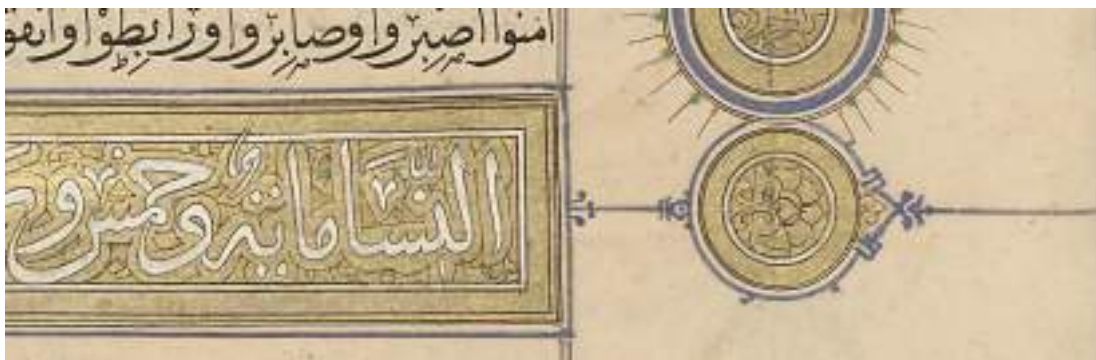 اٰمنوا اصبروا وصابروا ورابطوا واتقو
النسا مايه وخمس و